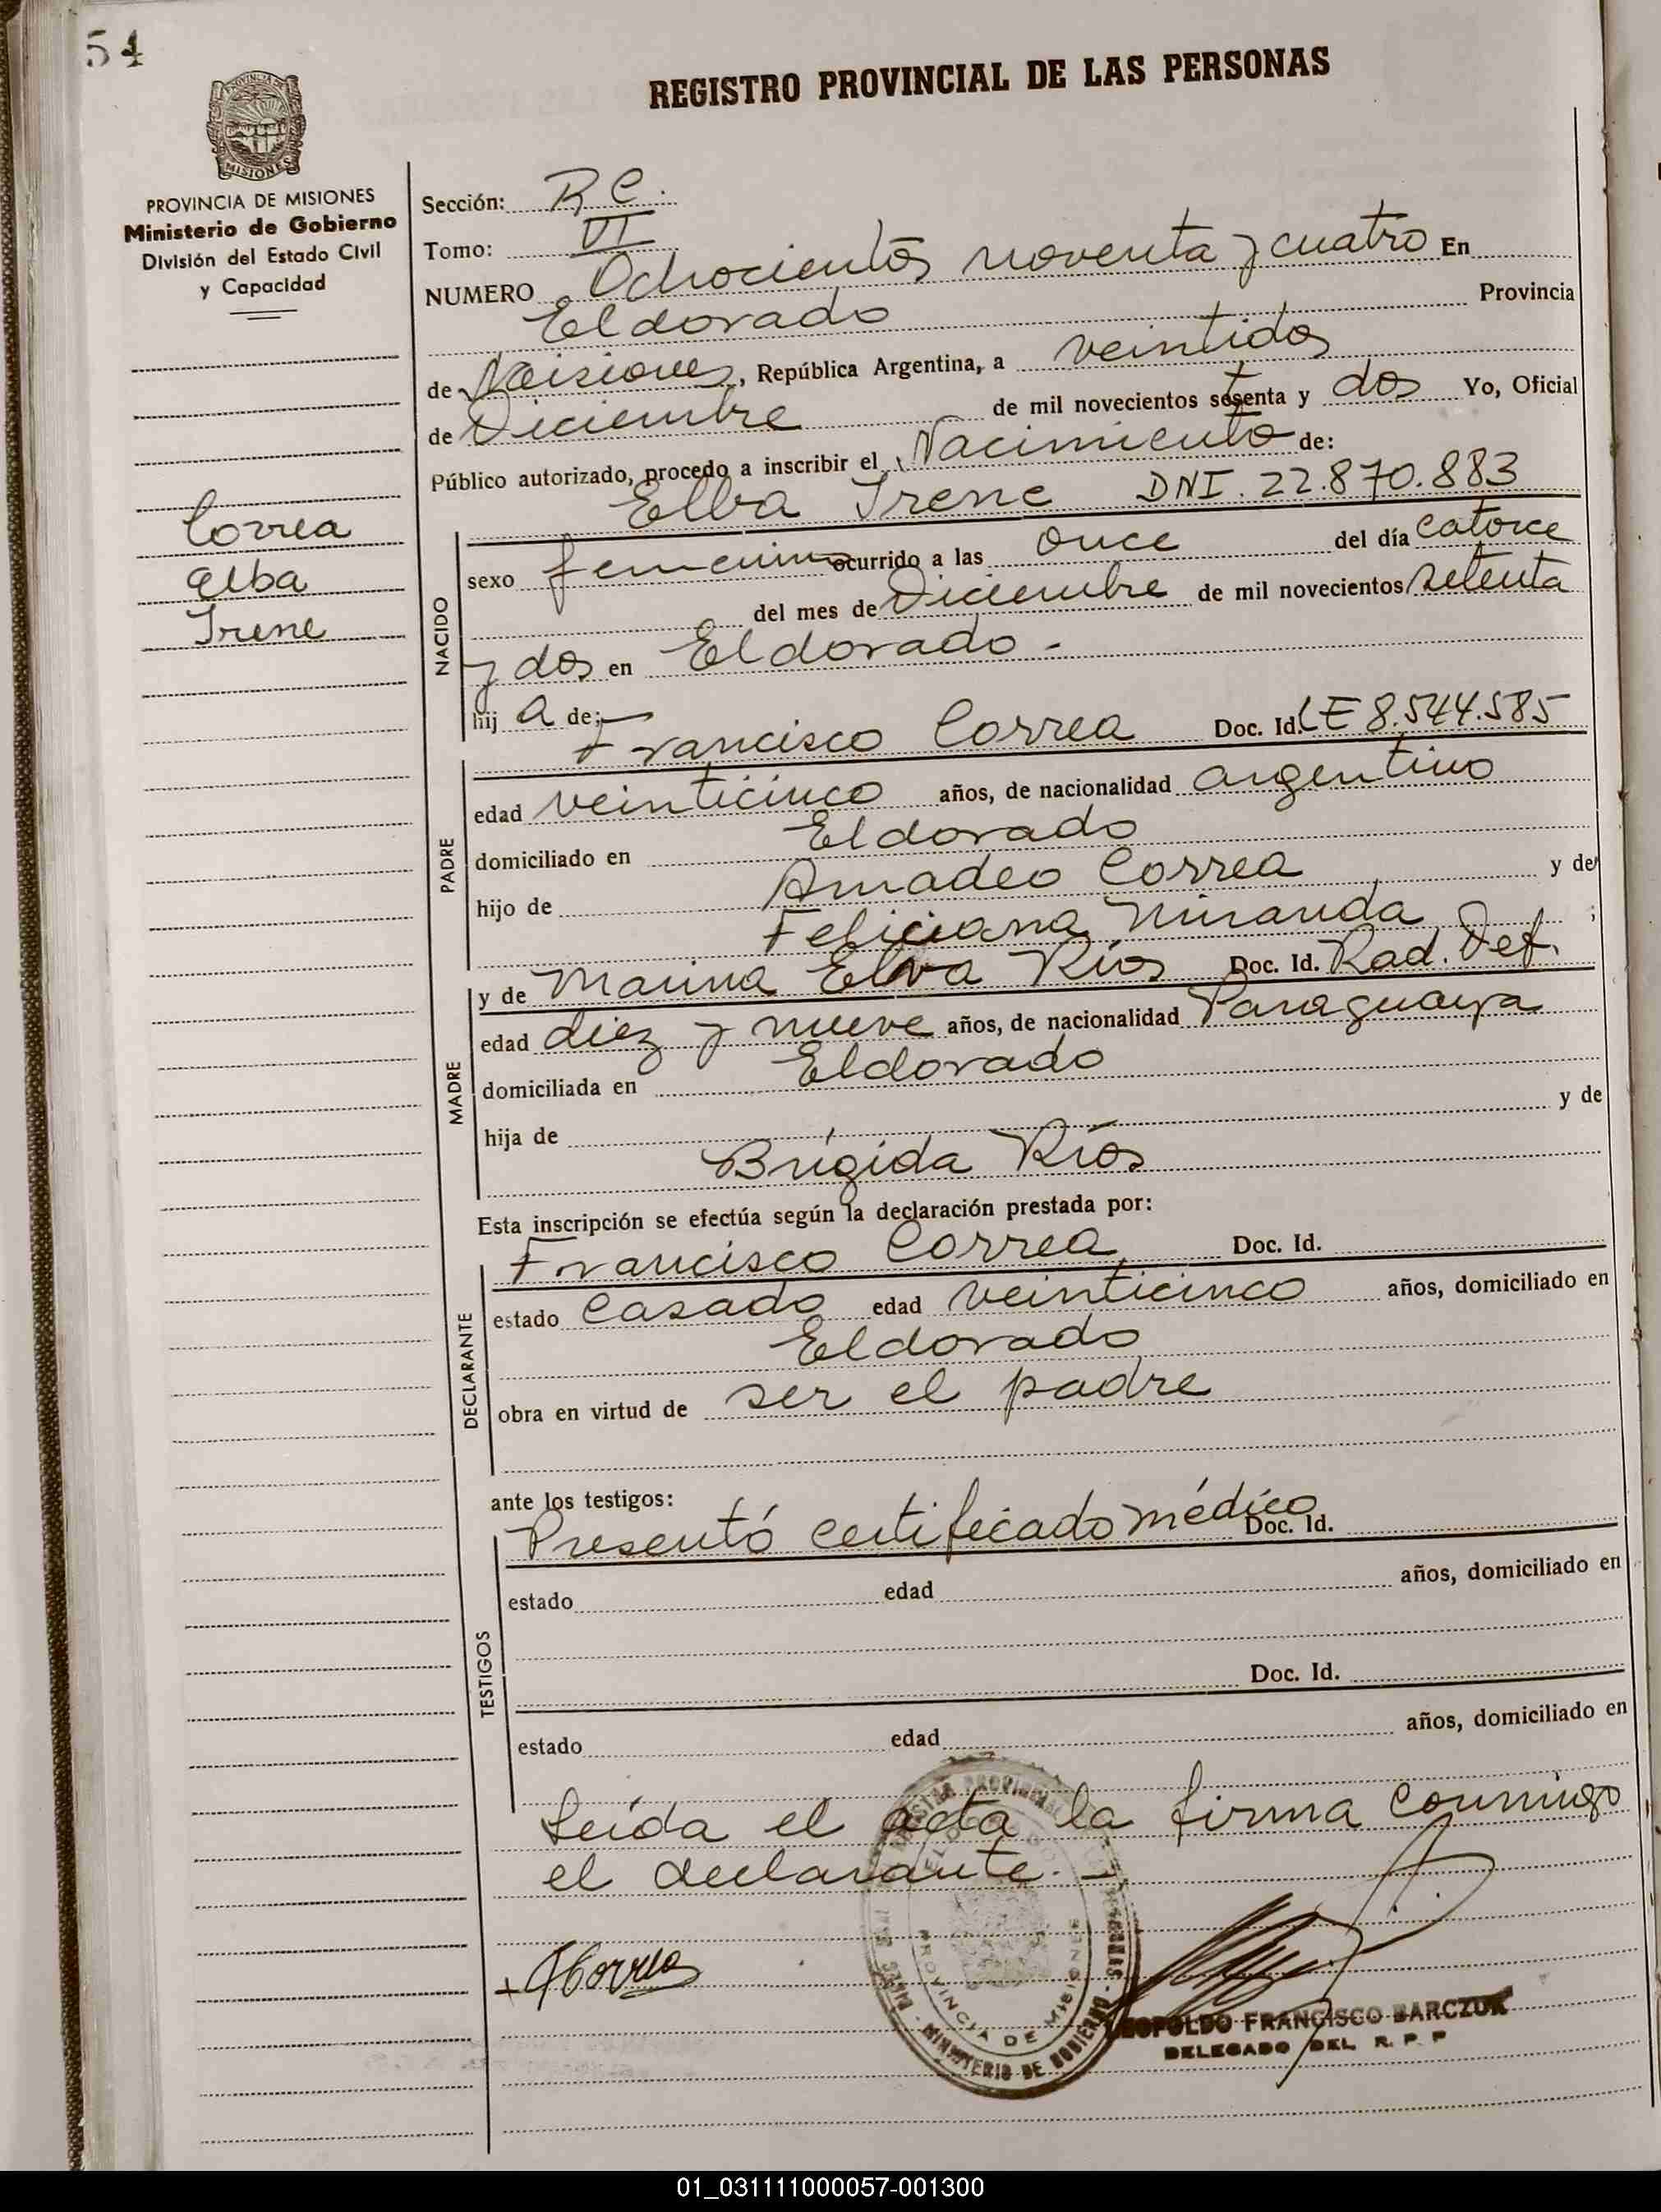 54
REGISTRO PROVINCIAL DE LAS PERSONAS
PROVINCIA DE MISIONES
MISIONES
PROVINCIA DE MISIONES
Ministerio de Gobierno
División del Estado Civil
y Capacidad
Correa
Elba
Irene
Sección: R C.
Tomo: VI
NUMERO Ochocientos noventa y cuatro En
Eldorado Provincia
de Misiones, República Argentina, a veintidos
de Diciembre de mil novecientos setenta y dos Yo, Oficial
Público autorizado, procedo a inscribir el Nacimiento de:
Elba Irene DNI. 22.870.883
NACIDO
sexo femenino ocurrido a las once del día catorce
del mes de Diciembre de mil novecientos setenta
y dos en Eldorado -
hij a de:
Francisco Correa Doc. Id. LE 8.544.585
PADRE
edad veinticinco años, de nacionalidad argentino
domiciliado en Eldorado
hijo de Amadeo Correa y de
Feliciana Miranda ;
y de Marina Elva Ríos Doc. Id. Rad. Def.
MADRE
edad diez y nueve años, de nacionalidad Paraguaya
domiciliada en Eldorado
hija de y de
Brígida Ríos
Esta inscripción se efectúa según la declaración prestada por:
Francisco Correa Doc. Id.
DECLARANTE
estado Casado edad veinticinco años, domiciliado en
Eldorado
obra en virtud de ser el padre
ante los testigos:
Presentó certificado médico Doc. Id.
TESTIGOS
estado edad años, domiciliado en
Doc. Id.
estado edad años, domiciliado en
Leída el acta la firma conmigo
el declarante. -
+ FCorrea
PROVINCIA DE MISIONES
MINISTERIO DE GOBIERNO
LEOPOLDO FRANCISCO BARCZUK
DELEGADO DEL R. P. P
01_031111000057-001300